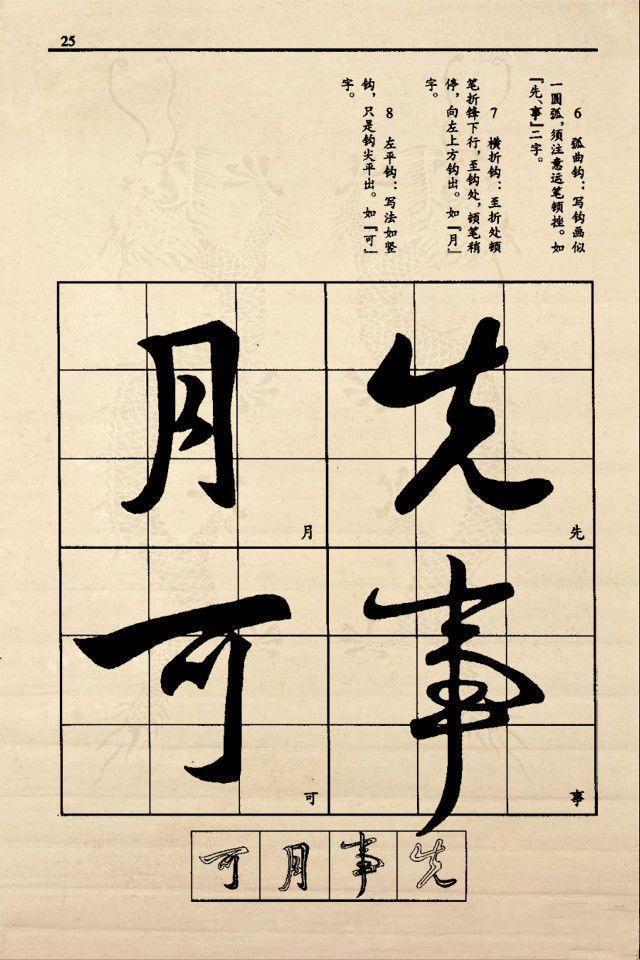 25
6 弧曲钩：写钩画似
一圆弧，须注意运笔顿挫。如
『先、事』二字。
7 横折钩：至折处顿
笔折锋下行，至钩处，顿笔稍
停，向左上方钩出。如『月』
字。
8 左平钩：写法如竖
钩，只是钩尖平出。如『可』
字。
先
先
事
事
月
月
可
可
先
事
月
可